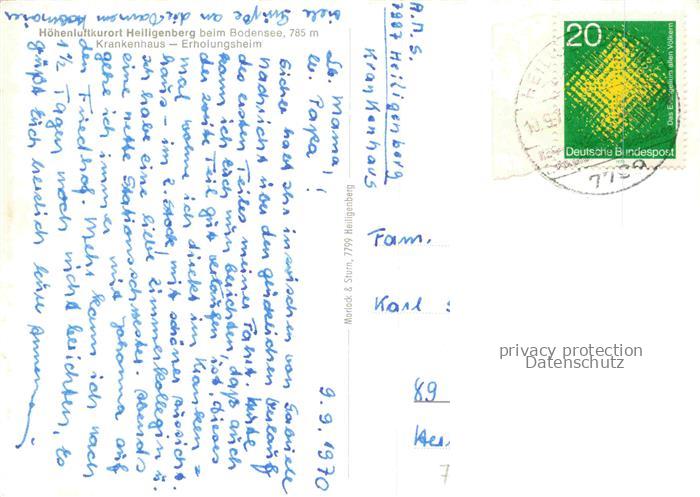 Höhenluftkurort Heiligenberg beim Bodensee, 785 m
Krankenhaus — Erholungsheim
9.9.1970
Lb. Mama!,
lb. Papa!
Sicher habt ihr inzwischen von Gabriele
Nachricht über den glücklichen Verlauf
des ersten Teiles meiner Fahrt. Heute
kann ich Euch nun berichten, daß auch
der zweite Teil gut verlaufen ist. Dieses
mal wohne ich direkt im Kranken=
haus - im 2. Stock mit schöner Aussicht.
Ich habe eine liebe Zimmerkollegin u.
eine nette Stationsschwester. Abends
gehe ich immer mit Johanna auf
den Friedhof. Mehr kann ich nach
1½ Tagen noch nicht berichten, so
grüßt Euch herzlich Eure
viele Grüße an die Damen
Morlock & Sturn, 7799 Heiligenberg
A.M.S.
7997 Heiligenberg
Krankenhaus
Fam.
Karl
89
20
Das Evangelium allen Völkern
Deutsche Bundespost
7799
privacy protection
Datenschutz